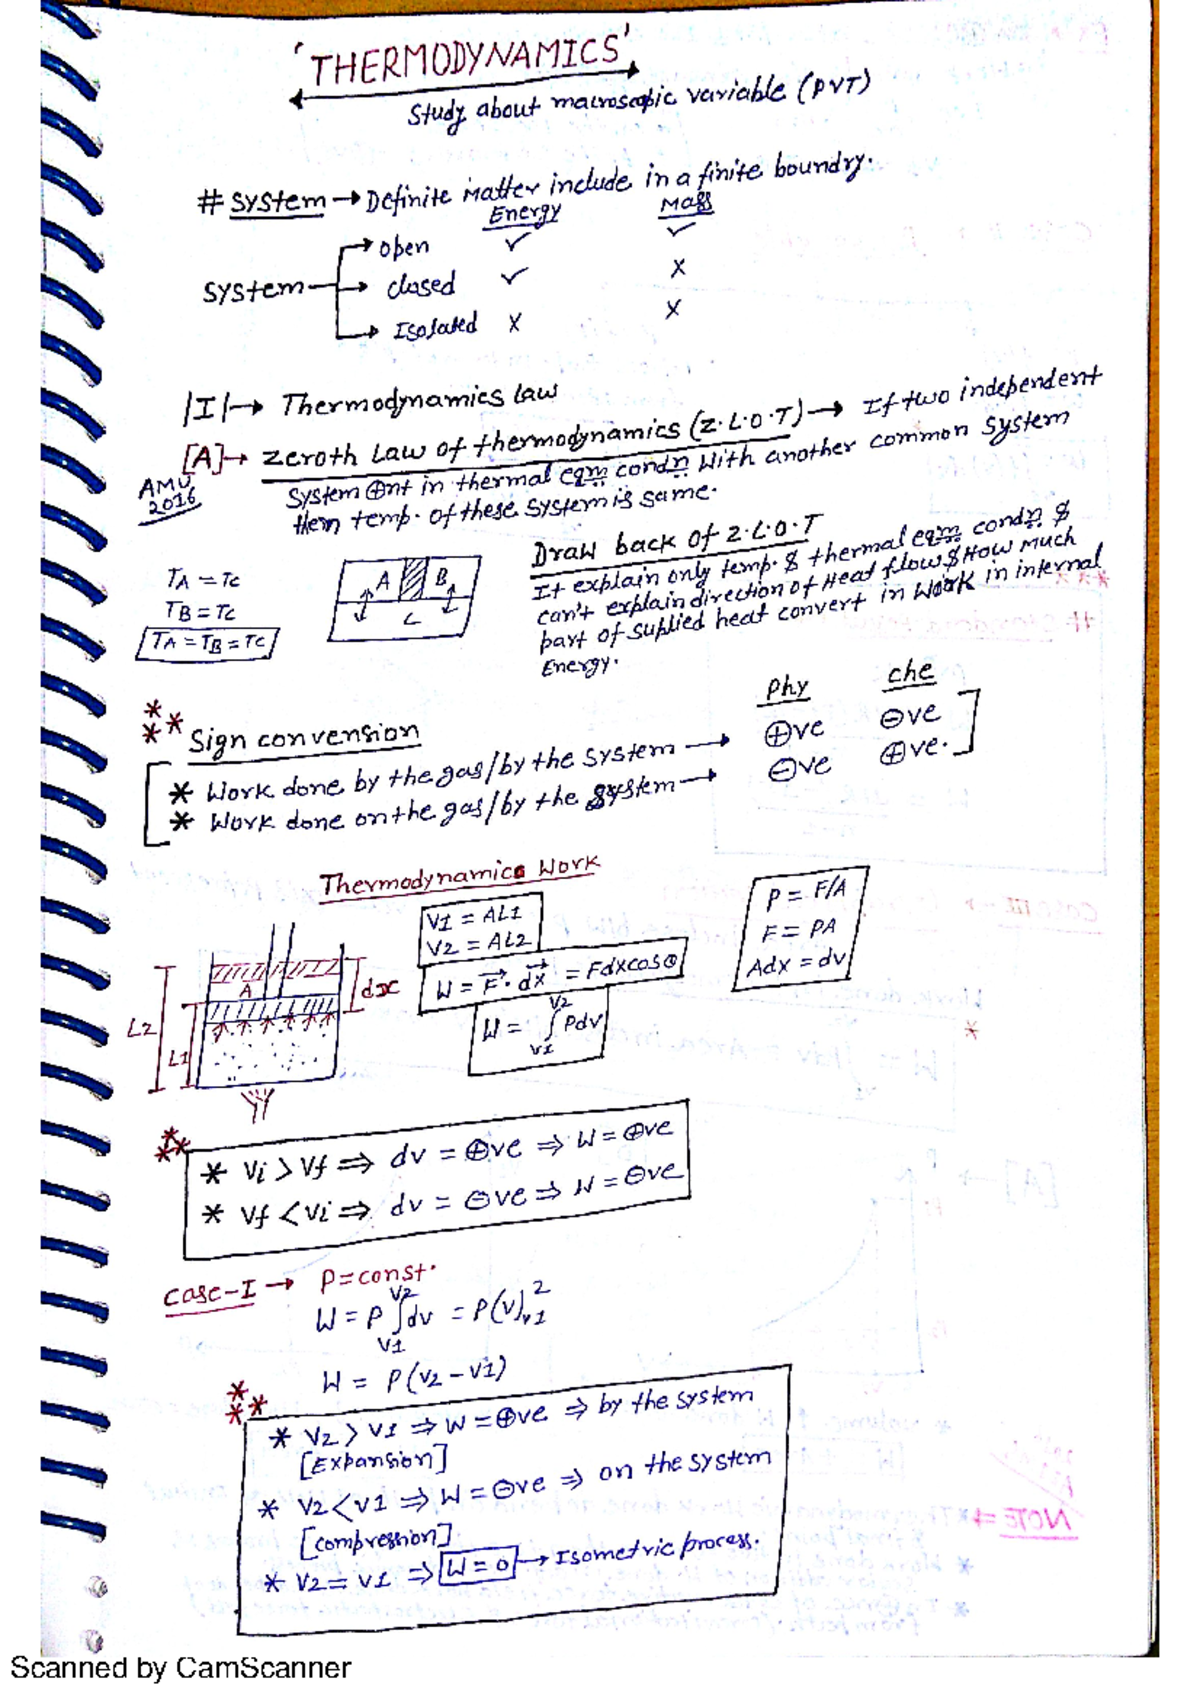 'THERMODYNAMICS'
Study about macroscopic variable (PVT)
# System → Definite matter include in a finite boundry.
Energy Mass
open ✓ ✓
System closed ✓ x
Isolated x x
|I| → Thermodynamics law
[A] → Zeroth Law of thermodynamics (Z.L.O.T) → If two independent
AMU 2016
System ⊕nt in thermal eqm condn With another common System
then temp. of these system is same.
TA = TC
TB = TC
TA = TB = TC
A B
C
Draw back of Z.L.O.T
It explain only temp. & thermal eqm condn &
can't explain direction of Heat flow & How much
part of supplied heat convert in Work in internal
Energy.
Phy che
** ** Sign convension
* Work done by the gas/by the system → ⊕ve ⊖ve
* Work done on the gas/by the system → ⊖ve ⊕ve.
Thermodynamics Work
V1 = AL1
V2 = AL2
P = F/A
F = PA
Adx = dv
W = F · dx = Fdxcosθ
W = ∫ Pdv
V2
V1
A
dx
L2
L1
* Vi > Vf ⇒ dv = ⊕ve ⇒ W = ⊕ve
* Vf < Vi ⇒ dv = ⊖ve ⇒ W = ⊖ve
Case-I → P = const.
W = P ∫ dv = P(v)
V2 2
V1 v1
W = P(V2 - V1)
* V2 > V1 ⇒ W = ⊕ve ⇒ by the system
[Expansion]
* V2 < V1 ⇒ W = ⊖ve ⇒ on the system
[compression]
* V2 = V1 ⇒ W = 0 → Isometric process.
Scanned by CamScanner